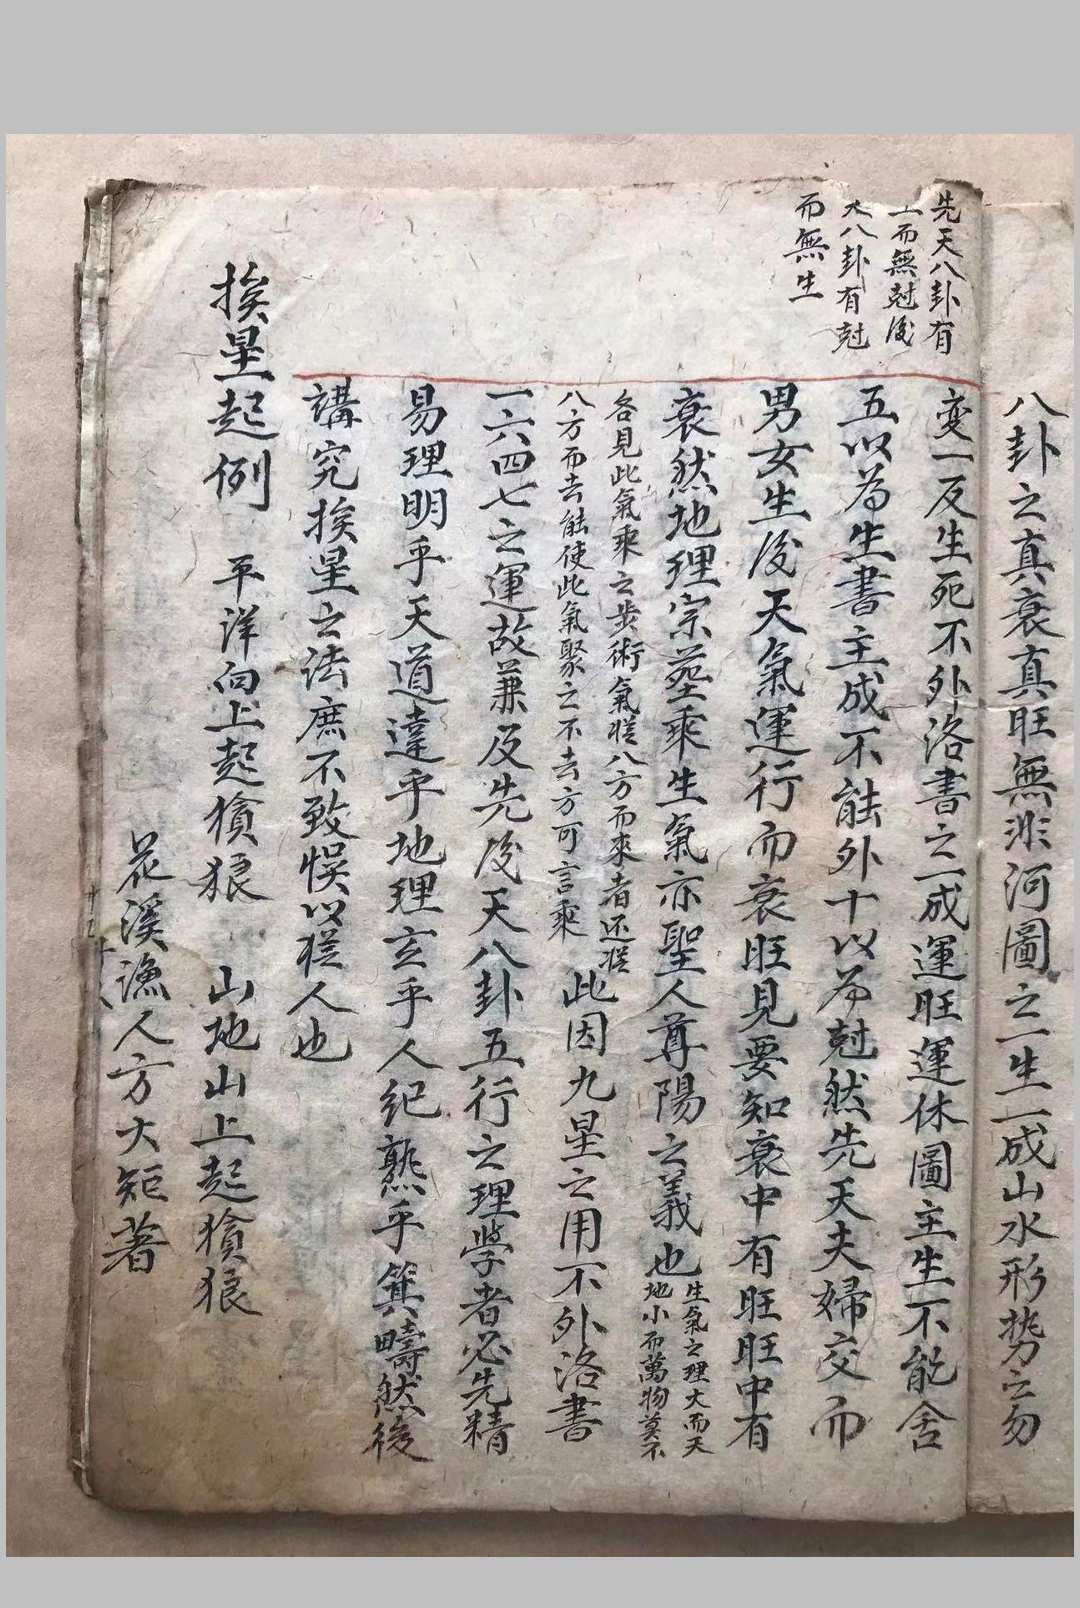 八卦之真衰真旺無非河圖之一生一成山水形势之勿
先天八卦有
而無尅後
天八卦有尅
而無生
变一反生死不外洛書之一成運旺運休圖主生不能舍
五以為生書主成不能外十以為尅然先天夫婦交而
男女生後天氣運行而衰旺見要知衰中有旺旺中有
衰然地理宗𦵏乘生氣亦聖人尊陽之義也
生氣之理大而天
地小而萬物莫不
各見此氣乘之步術氣從八方而來者还從
八方而去能使此氣聚之不去方可言乘
此因九星之用不外洛書
一六四七之運故兼及先後天八卦五行之理學者必先精
易理明乎天道達乎地理玄乎人纪熟乎箕疇然後
講究挨星之法庶不致悮以从人也
挨星起例 平洋向上起獱狼 山地山上起獱狼
花溪漁人方大矩著